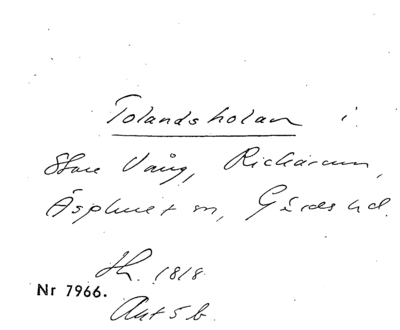 Tolandsholan i
Store Vång, Rickarum,
Äsphult sn, Gärds hd.
Jh. 1818
Nr 7966.
Akt 5 b